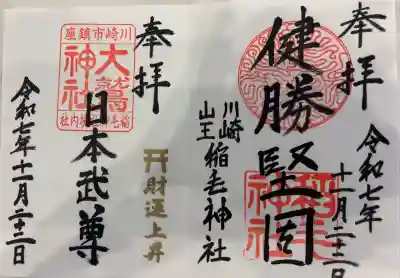 奉拝
健勝堅固
川崎
山王
稲毛神社
令和七年
十一月二十二日
奉拝
川崎市鎮座
大鷲神社
稲毛神社境内社
日本武尊
財運上昇
令和七年十一月二十二日